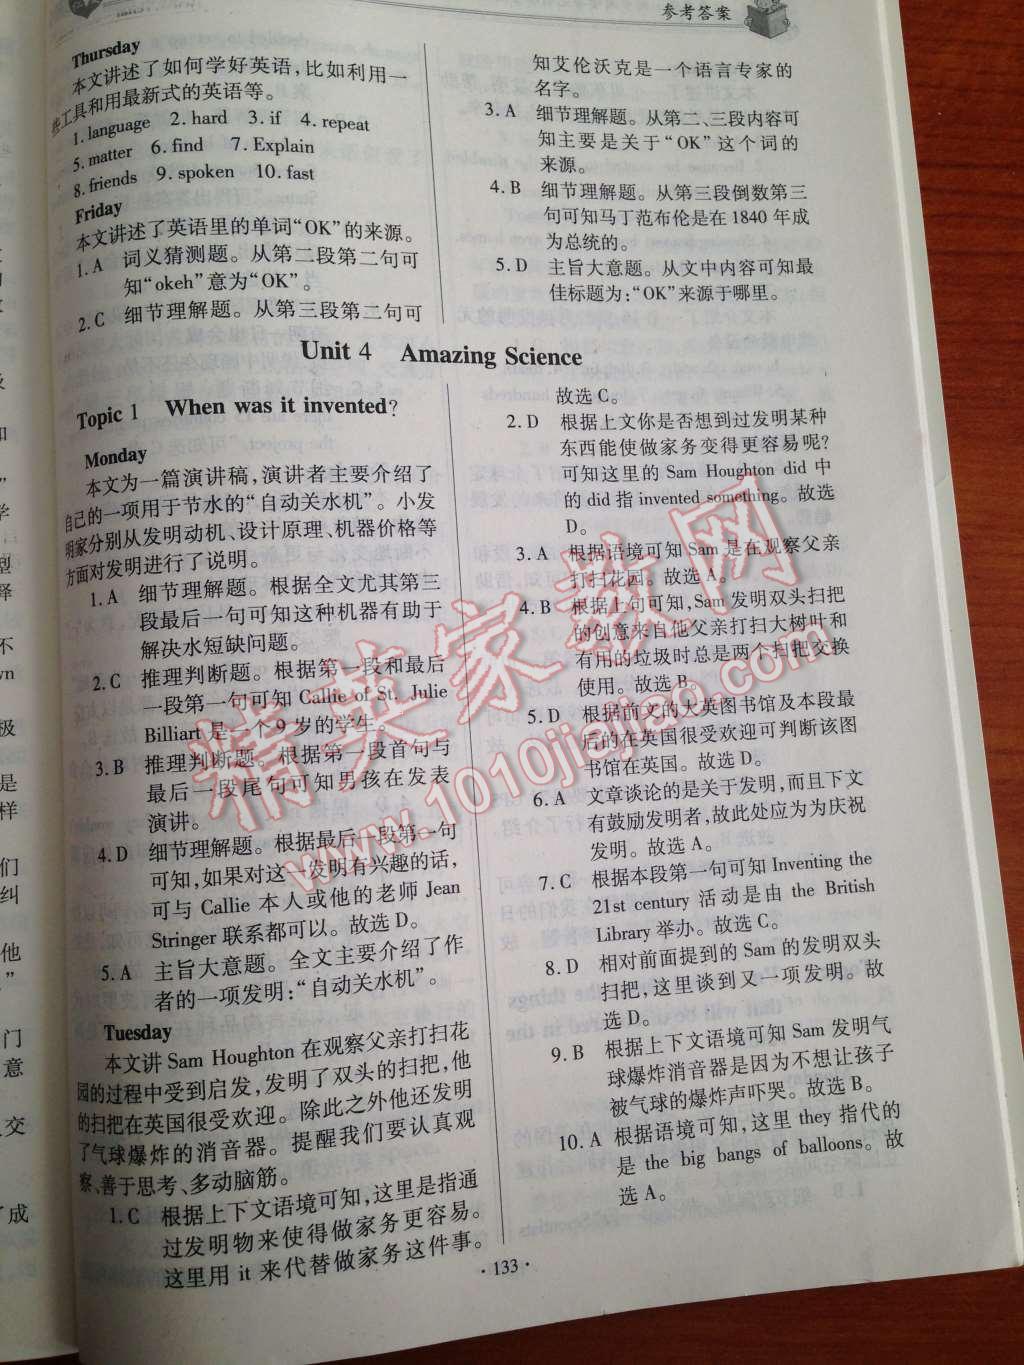 参考答案
Thursday
本文讲述了如何学好英语,比如利用一
些工具和用最新式的英语等。
1. language 2. hard 3. if 4. repeat
5. matter 6. find 7. Explain
8. friends 9. spoken 10. fast
Friday
本文讲述了英语里的单词“OK”的来源。
1. A 词义猜测题。从第二段第二句可
知“okeh”意为“OK”。
2. C 细节理解题。从第三段第二句可
知艾伦沃克是一个语言专家的
名字。
3. A 细节理解题。从第二、三段内容可
知主要是关于“OK”这个词的
来源。
4. B 细节理解题。从第三段倒数第三
句可知马丁范布伦是在 1840 年成
为总统的。
5. D 主旨大意题。从文中内容可知最
佳标题为:“OK”来源于哪里。
Unit 4 Amazing Science
Topic 1 When was it invented?
Monday
本文为一篇演讲稿,演讲者主要介绍了
自己的一项用于节水的“自动关水机”。小发
明家分别从发明动机、设计原理、机器价格等
方面对发明进行了说明。
1. A 细节理解题。根据全文尤其第三
段最后一句可知这种机器有助于
解决水短缺问题。
2. C 推理判断题。根据第一段和最后
一段第一句可知 Callie of St. Julie
Billiart 是一个 9 岁的学生。
3. B 推理判断题。根据第一段首句与
最后一段尾句可知男孩在发表
演讲。
4. D 细节理解题。根据最后一段第一句
可知,如果对这一发明有兴趣的话,
可与 Callie 本人或他的老师 Jean
Stringer 联系都可以。故选 D。
5. A 主旨大意题。全文主要介绍了作
者的一项发明:“自动关水机”。
Tuesday
本文讲 Sam Houghton 在观察父亲打扫花
园的过程中受到启发,发明了双头的扫把,他
的扫把在英国很受欢迎。除此之外他还发明
了气球爆炸的消音器。提醒我们要认真观
察、善于思考、多动脑筋。
1. C 根据上下文语境可知,这里是指通
过发明物来使得做家务更容易。
这里用 it 来代替做家务这件事。
故选 C。
2. D 根据上文你是否想到过发明某种
东西能使做家务变得更容易呢?
可知这里的 Sam Houghton did 中
的 did 指 invented something。故选
D。
3. A 根据语境可知 Sam 是在观察父亲
打扫花园。故选 A。
4. B 根据上句可知,Sam 发明双头扫把
的创意来自他父亲打扫大树叶和
有用的垃圾时总是两个扫把交换
使用。故选 B。
5. D 根据前文的大英图书馆及本段最
后的在英国很受欢迎可判断该图
书馆在英国。故选 D。
6. A 文章谈论的是关于发明,而且下文
有鼓励发明者,故此处应为为庆祝
发明。故选 A。
7. C 根据本段第一句可知 Inventing the
21st century 活动是由 the British
Library 举办。故选 C。
8. D 相对前面提到的 Sam 的发明双头
扫把,这里谈到又一项发明。故
选 D。
9. B 根据上下文语境可知 Sam 发明气
球爆炸消音器是因为不想让孩子
被气球的爆炸声吓哭。故选 B。
10. A 根据语境可知,这里 they 指代的
是 the big bangs of balloons。故
选 A。
· 133 ·
精英家教网
www.1010jiajiao.com